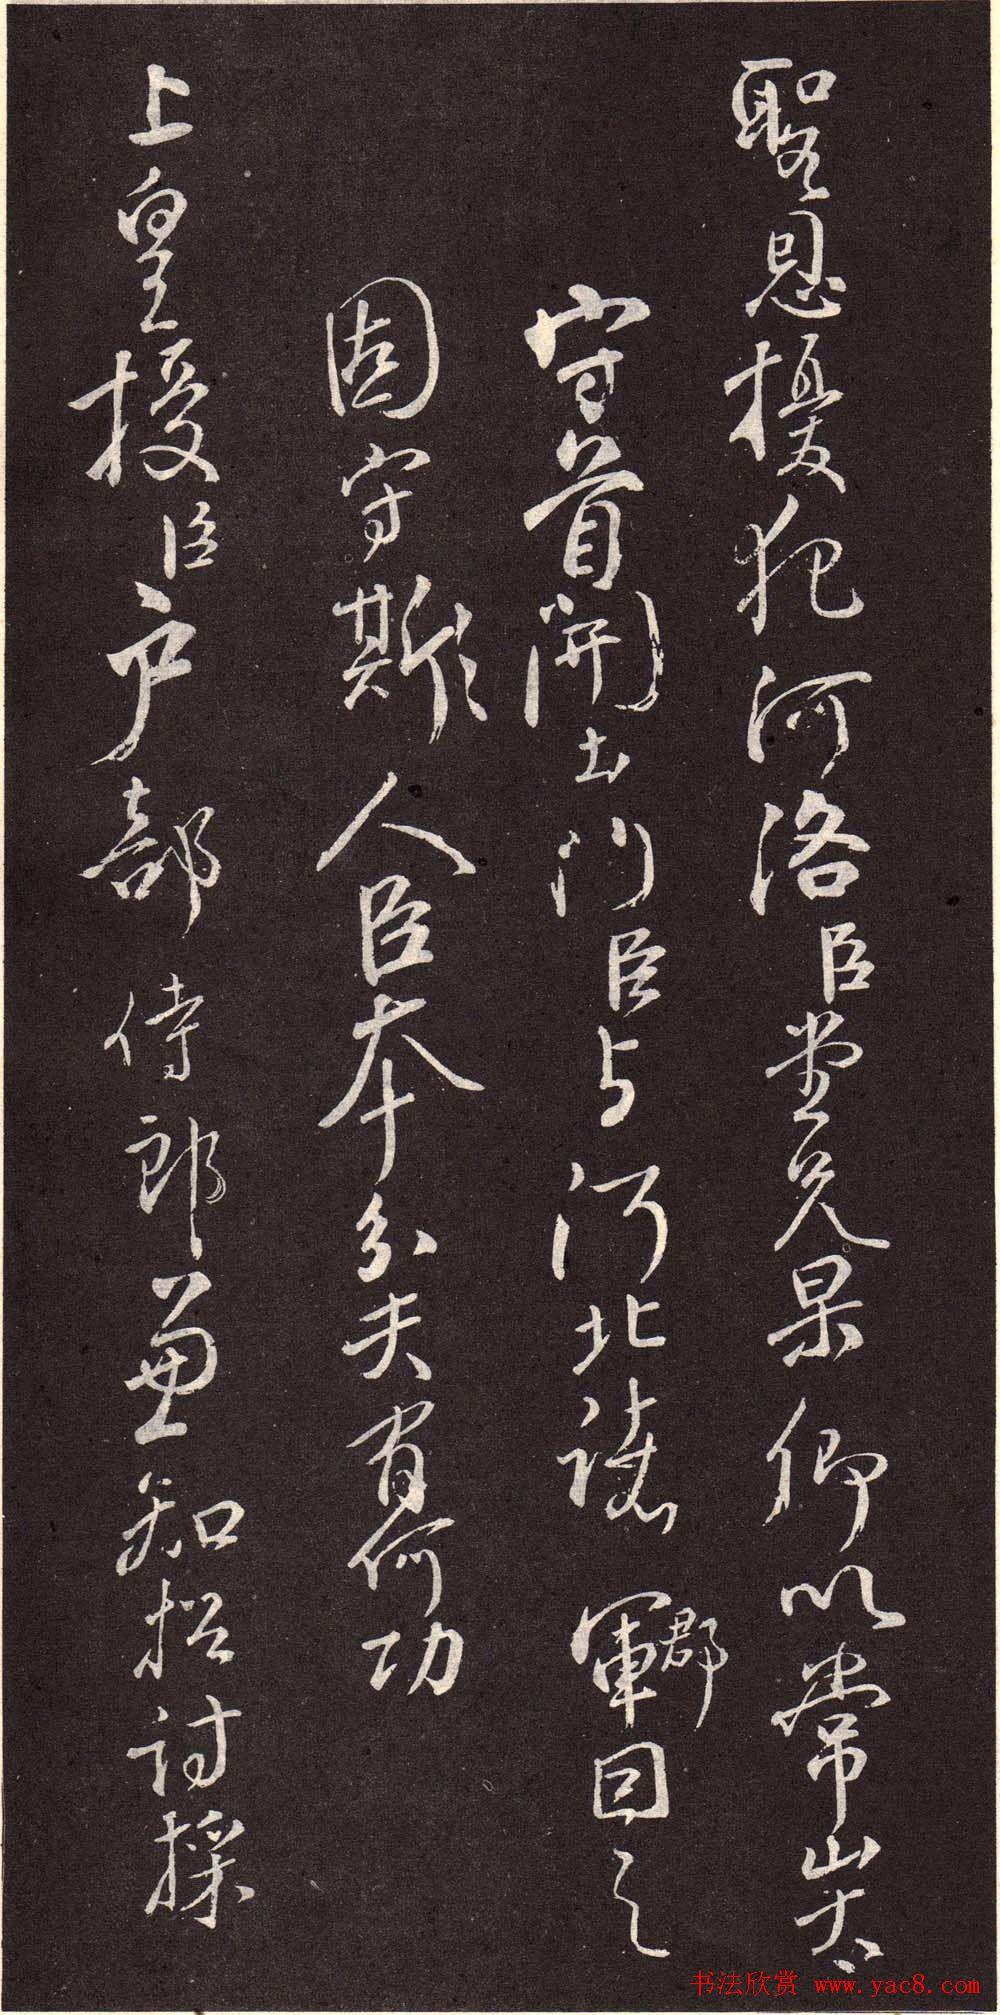 聖恩擾犯河洛臣堂兄杲卿以常山太
守首開土門臣与河北諸軍郡因之
固守斯人臣本分夫有何功
上皇授臣户部侍郎兼知招討採
书法欣赏 www.yac8.com